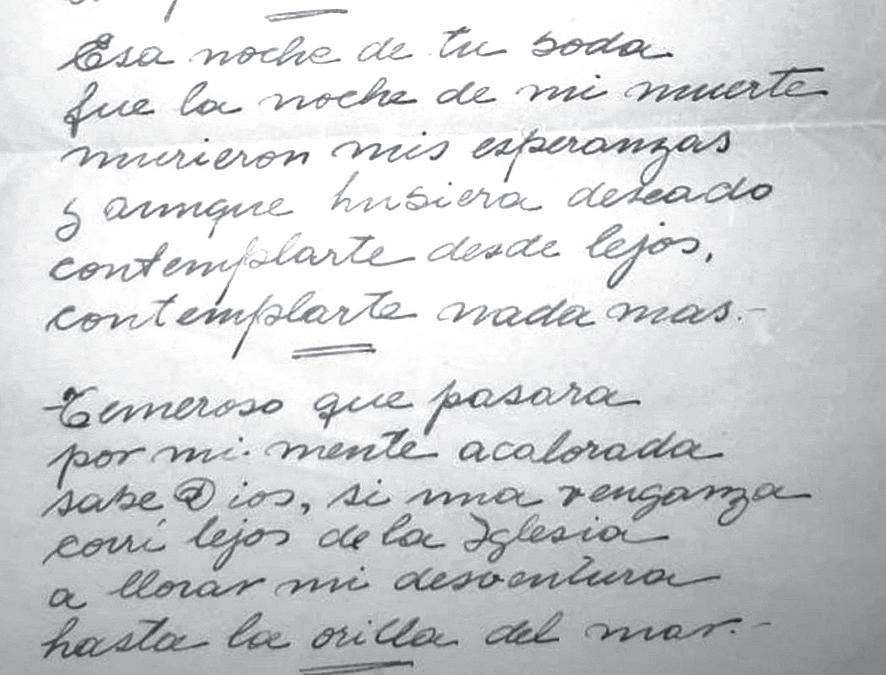 Esa noche de tu boda
fue la noche de mi muerte
murieron mis esperanzas
y aunque hubiera deseado
contemplarte desde lejos,
contemplarte nada mas.-
Temeroso que pasara
por mi mente acalorada
sabe Dios, si una venganza
corrí lejos de la Iglesia
a llorar mi desventura
hasta la orilla del mar.-